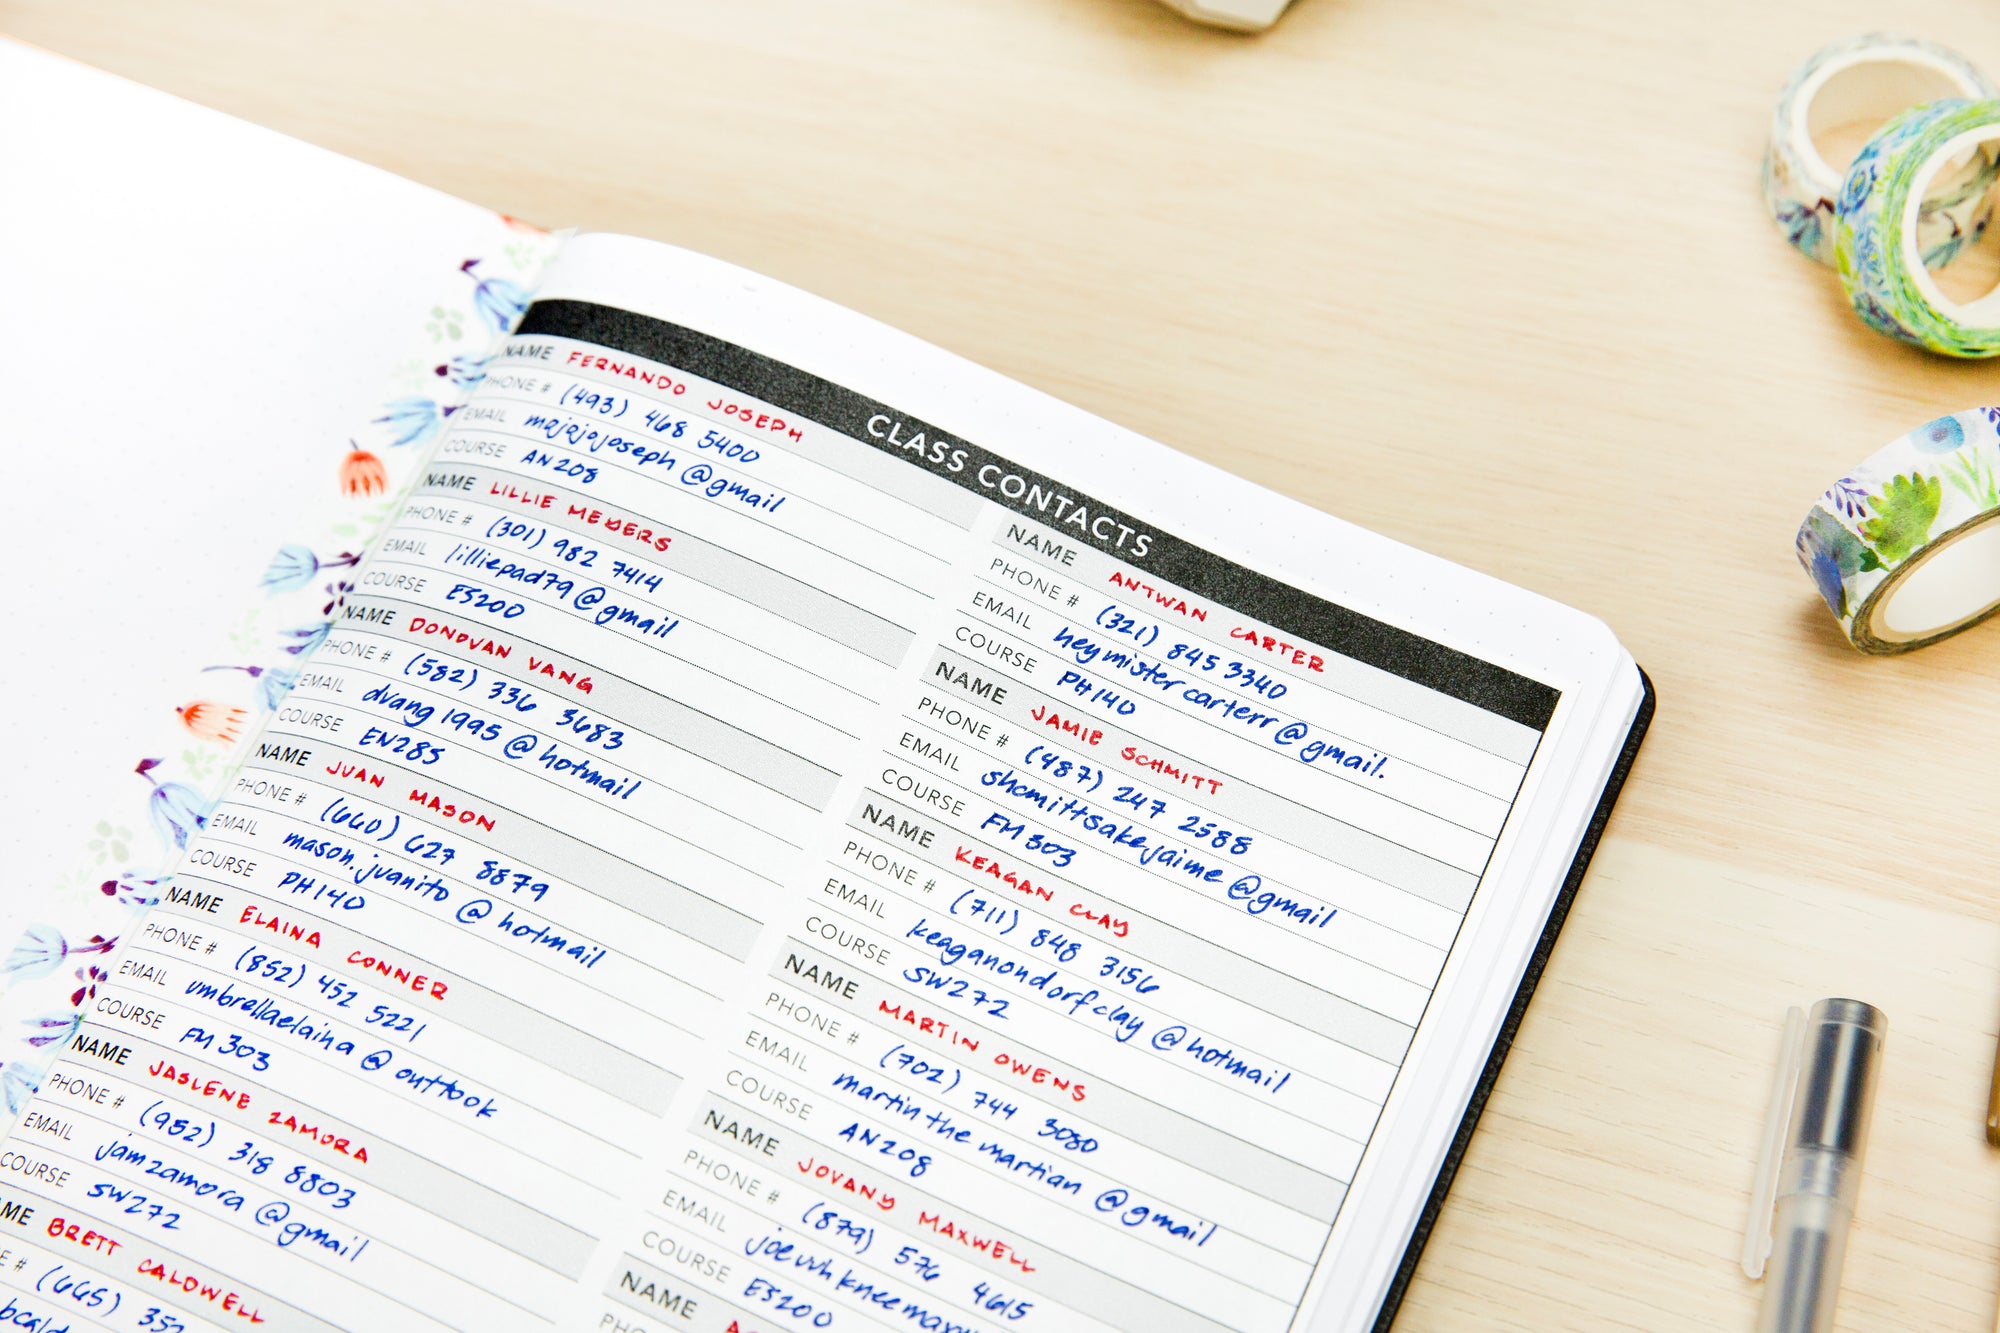 CLASS CONTACTS
NAME FERNANDO JOSEPH
PHONE # (493) 468 5400
EMAIL majajojoseph @gmail
COURSE AN208
NAME LILLIE MEYERS
PHONE # (301) 982 7414
EMAIL lilliepad79 @gmail
COURSE ES200
NAME DONOVAN VANG
PHONE # (582) 336 3683
EMAIL dvang1995 @ hotmail
COURSE EN285
NAME JUAN MASON
PHONE # (660) 627 8879
EMAIL mason.juanito @ hotmail
COURSE PH140
NAME ELAINA CONNER
PHONE # (852) 452 5221
EMAIL umbrellaelaina @ outlook
COURSE FM303
NAME JASLENE ZAMORA
PHONE # (952) 318 8803
EMAIL jamzamora @gmail
COURSE SW272
NAME BRETT CALDWELL
(665) 352
NAME ANTWAN CARTER
PHONE # (321) 845 3340
EMAIL heymistercarterr @ gmail.
COURSE PH140
NAME JAMIE SCHMITT
PHONE # (487) 247 2588
EMAIL shcmittsakejaime @gmail
COURSE FM303
NAME KEAGAN CLAY
PHONE # (711) 848 3156
EMAIL keaganondorfclay @hotmail
COURSE SW272
NAME MARTIN OWENS
PHONE # (702) 744 3080
EMAIL martin the martian @gmail
COURSE AN208
NAME JOVANY MAXWELL
PHONE # (879) 576 4615
EMAIL
COURSE ES200
NAME